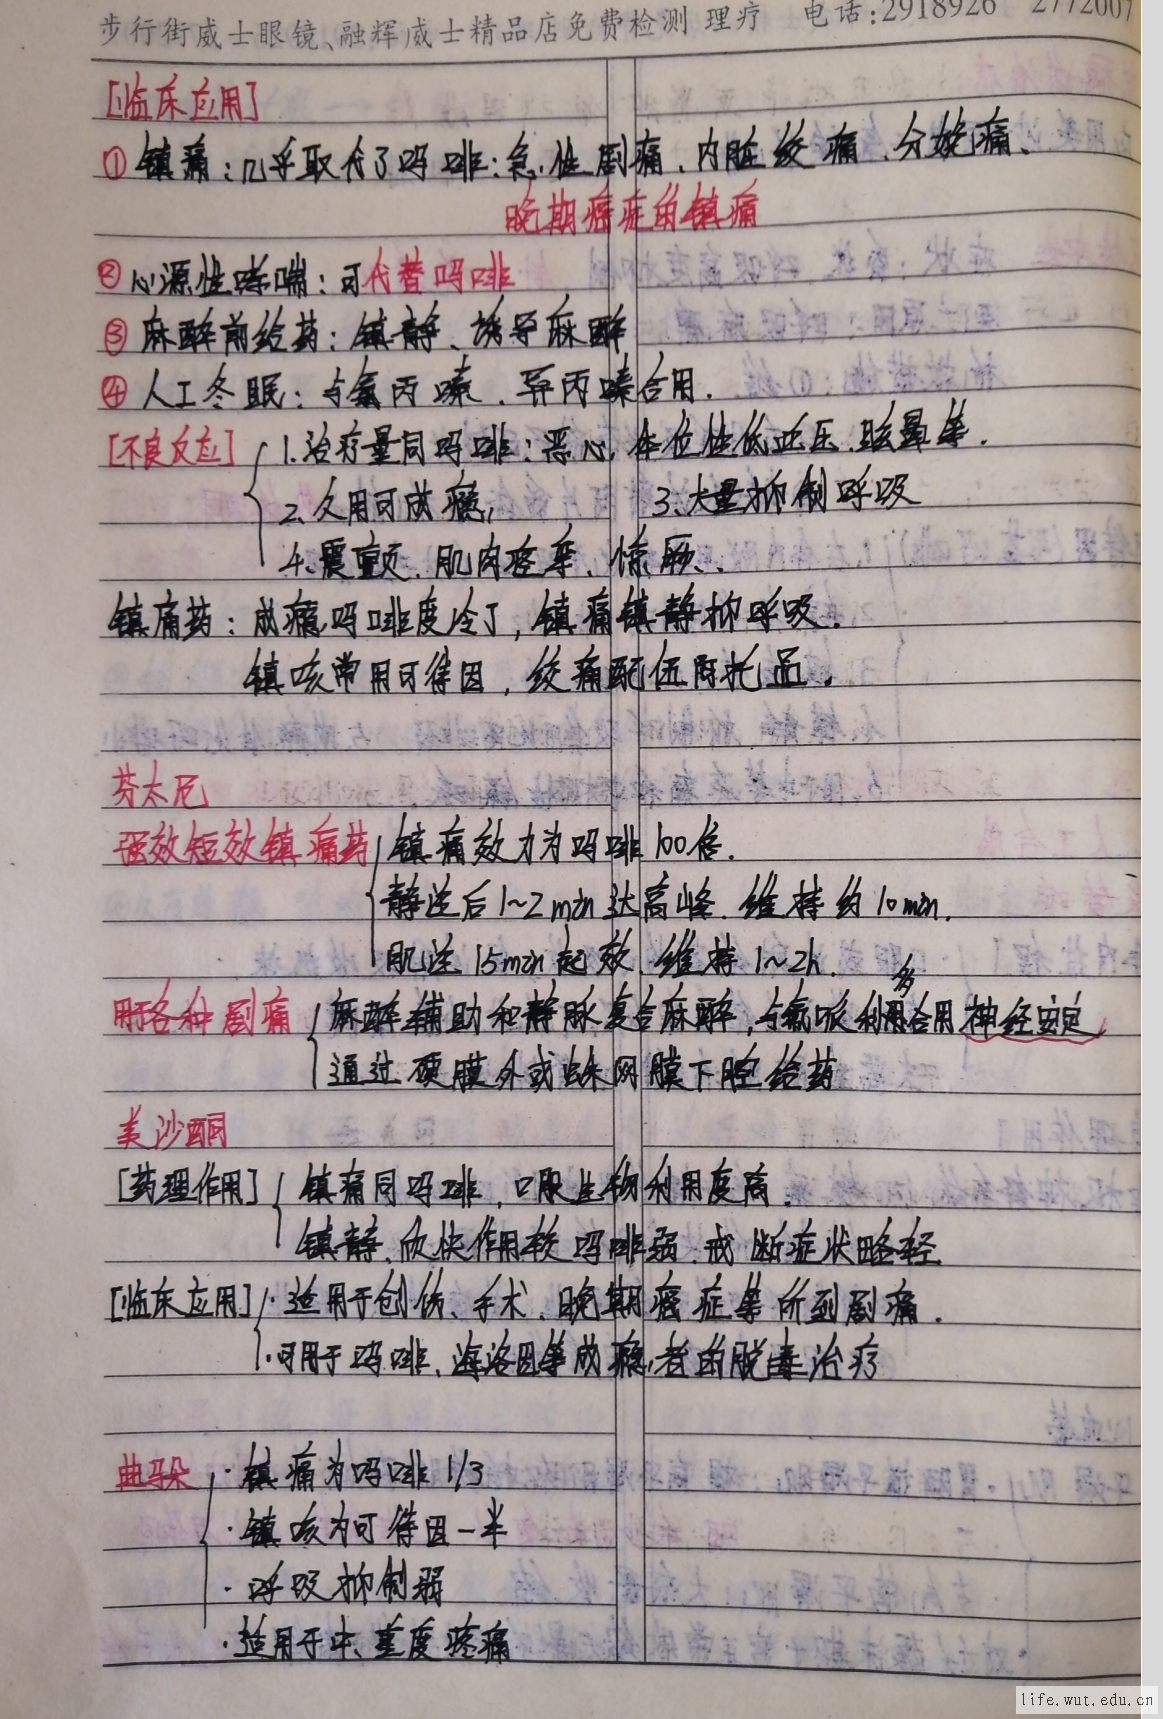 步行街威士眼镜、融辉威士精品店免费检测 理疗 电话:2918926 2772007
[临床应用]
①镇痛:几乎取代了吗啡:急性剧痛、内脏绞痛、分娩痛、
晚期癌症的镇痛
②心源性哮喘:可代替吗啡
③麻醉前给药:镇静、诱导麻醉
④人工冬眠:与氯丙嗪、异丙嗪合用.
[不良反应] 1.治疗量同吗啡:恶心,体位性低血压.眩晕等.
2.久用可成瘾, 3.大量抑制呼吸
4.震颤、肌肉痉挛、惊厥、
镇痛药:成瘾吗啡度冷丁,镇痛镇静抑呼吸.
镇咳常用可待因,绞痛配伍阿托品.
芬太尼
强效短效镇痛药 镇痛效力为吗啡100倍.
静注后1~2min达高峰.维持约10min.
肌注15min起效,维持1~2h.
用于各种剧痛 麻醉辅助和静脉复合麻醉,与氟哌利多合用神经安定
通过硬膜外或蛛网膜下腔给药
美沙酮
[药理作用] 镇痛同吗啡,口服生物利用度高.
镇静、欣快作用较吗啡弱.戒断症状略轻.
[临床应用] ·适用于创伤、手术、晚期癌症等所到剧痛.
·可用于吗啡、海洛因等成瘾者的脱毒治疗
曲马朵 ·镇痛为吗啡1/3
·镇咳为可待因一半
·呼吸抑制弱
·适用于中、重度疼痛
life.wut.edu.cn